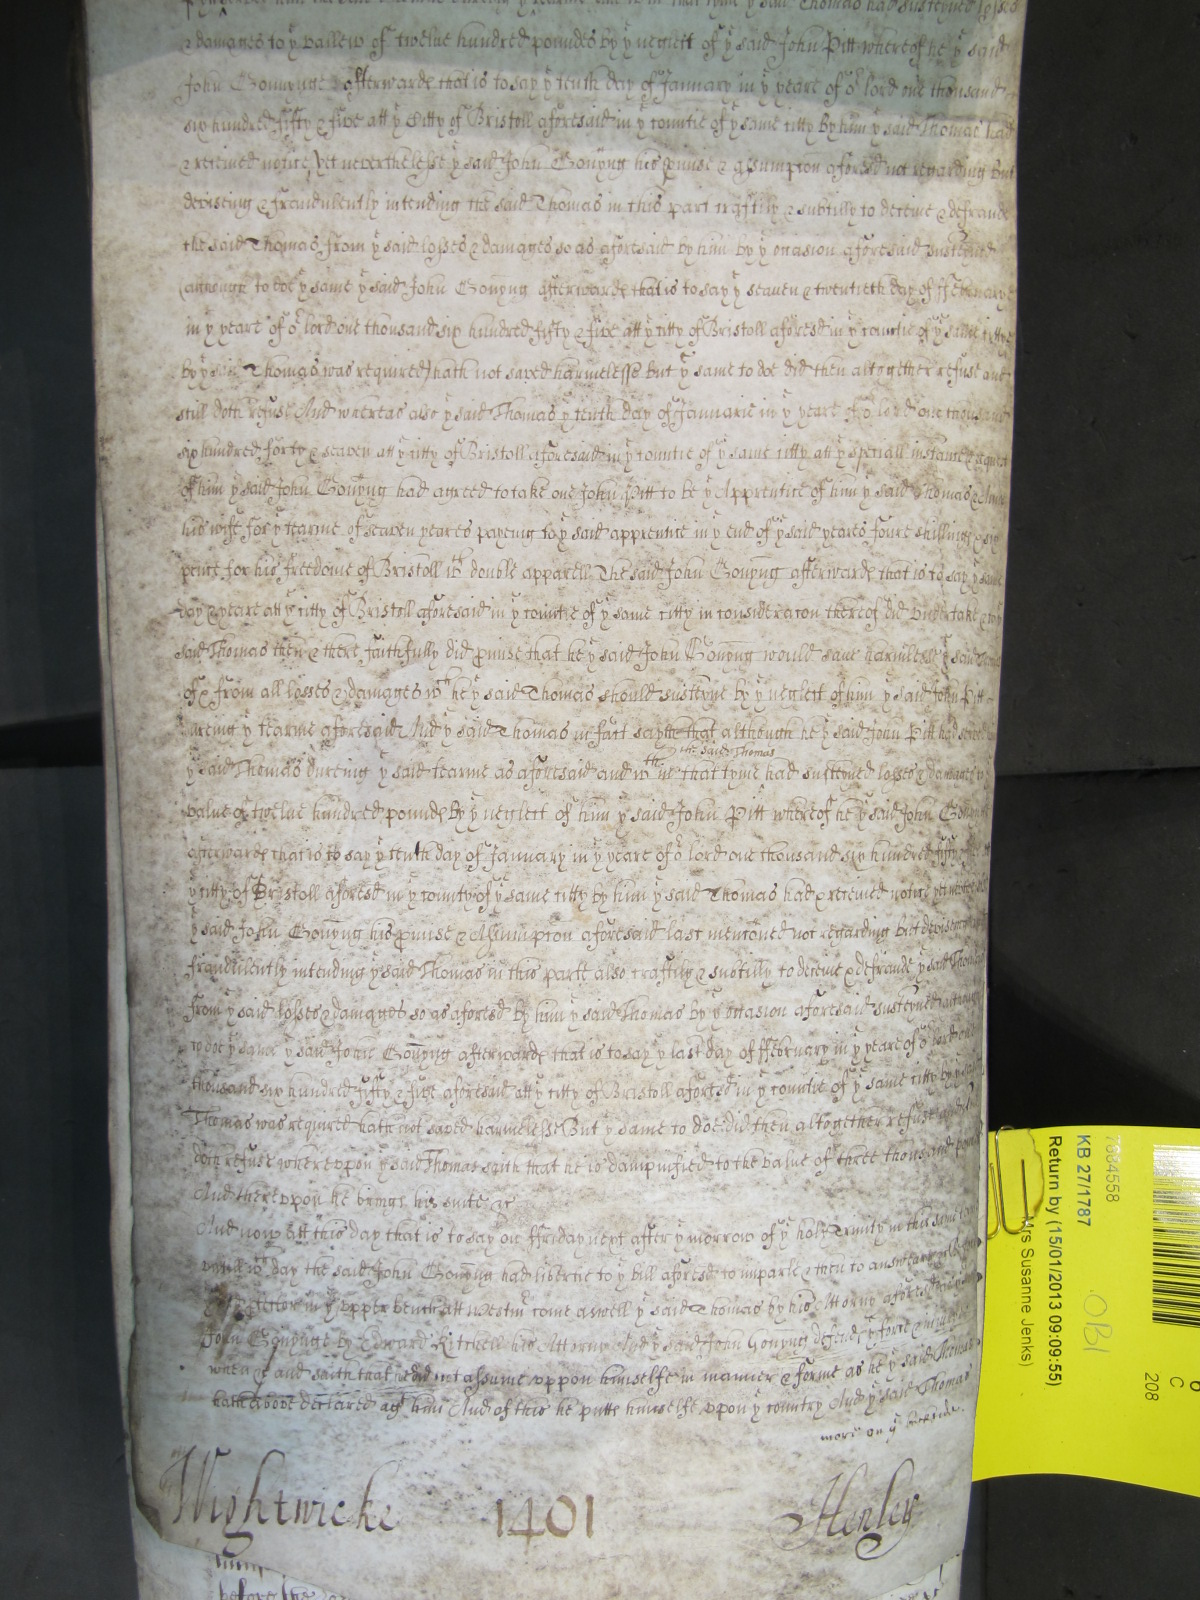 & damages to yͤ vallew of twelve hundred poundes by yͤ neglect of yͤ said John Pitt whereof he yͤ said
John Gonynge afterwards that is to say yͤ tenth day of January in yͤ yeare of oͬ lord one thousand
six hundred fifty & five att yͤ Citty of Bristoll aforesaid in yͤ countie of yͤ same citty by him yͤ said Thomas had
received notice yet neverthelesse yͤ said John Gonyng his pmise & assumption aforesd not regarding but
deviseing & fraudulently intending the said Thomas in this part craftily & subtilly to deceive & defraude
the said Thomas from yͤ said losses & damages so as aforesaid by him by yͤ occasion aforesaid susteyned
(although to doe yͤ same yͤ said John Gonyng afterwards that is to say yͤ seaven & twentieth day of ffebruary
in yͤ yeare of oͬ lord one thousand six hundred fifty & five att yͤ citty of Bristoll aforesd in yͤ countie of yͤ same citty
by yͤ said Thomas was required) hath not saved harmelesse but yͤ same to doe did then altogether refuse and
still doth refuse And whereas also yͤ said Thomas yͤ tenth day of Januarie in yͤ yeare of oͬ lord one thousand
six hundred forty & seaven att yͤ citty of Bristoll aforesaid in yͤ countie of yͤ same citty att yͤ speciall instance &
of him yͤ said John Gonyng had agreed to take one John Pitt to be yͤ Apprentice of him yͤ said Thomas &
his wife for yͤ tearme of seaven yeares payeing to yͤ said apprentice in yͤ end of yͤ said yeares foure shillings & six
pence for his freedome of Bristoll wth double apparell The said John Gonyng afterwards that is to say yͤ same
day & yeare att yͤ citty of Bristoll aforesaid in yͤ countie of yͤ same citty in consideracon thereof did undertake & to yͤ
said Thomas then & there faithfully did pmise that he yͤ said John Gonyng would save harmlesse yͤ said Thomas
of & from all losses & damages wch he yͤ said Thomas should susteyne by yͤ neglect of him yͤ said John Pitt
dureing yͤ tearme aforesaid And yͤ said Thomas in fact sayth that although he yͤ said John Pitt had served
the said Thomas
yͤ said Thomas dureing yͤ said tearme as aforesaid and wthin that tyme had susteyned losses & damages to yͤ
value of twelve hundred pounds by yͤ neglect of him yͤ said John Pitt whereof he yͤ said John Gonyng
afterwards that is to say yͤ tenth day of January in yͤ yeare of oͬ lord one thousand six hundred fifty
yͤ citty of Bristoll aforesd in yͤ county of yͤ same citty by him yͤ said Thomas had received notice yet
yͤ said John Gonyng his pmise & Assumption aforesaid last menconed not regarding but deviseing
fraudulently intending yͤ said Thomas in this parte also craftily & subtilly to deceive & defraude yͤ said Thomas
from yͤ said losses & damages so as aforesd by him yͤ said Thomas by yͤ occasion aforesaid susteyned although
to doe yͤ same yͤ said John Gonyng afterwards that is to say yͤ last day of ffebruary in yͤ yeare of oͬ lord one
thousand six hundred fifty & five aforesaid att yͤ citty of Bristoll aforesd in yͤ countie of yͤ same citty by yͤ said
Thomas was required hath not saved harmelesse But yͤ same to doe did then altogether refuse and
doth refuse whereuppon yͤ said Thomas saith that he is dampnified to the value of three thousand pounds
And thereuppon he brings his suite &c
And now att this day that is to say on ffriday next after yͤ morrow of yͤ holy Trinity in this same
untill wch day the said John Gonyng had libertie to yͤ bill aforesd to imparle & then to answeare
in yͤ upper bench att Westmr come aswell yͤ said Thomas by his Attorny aforesd
John Gonynge by Edward Kitchen his Attorny And yͤ said John Gonyng defends yͤ force &
when &c and saith that he did not assume uppon himselfe in manner & forme as he yͤ said Thomas
hath above declared agt him And of this he putts himselfe upon yͤ country And yͤ said Thomas
more on yͤ
Wightwicke 1401 Henley
before the
7884558
KB 27/1787
Return by (15/01/2013 09:09:55)
Mrs Susanne Jenks)
OBI
C
208